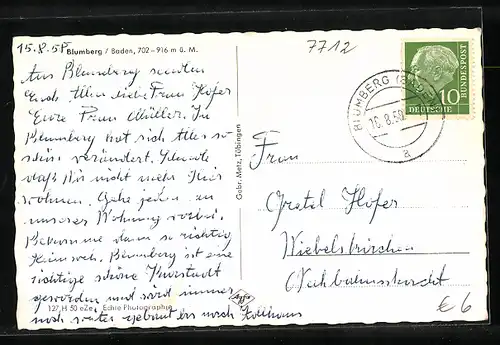 15.8.58
Blumberg / Baden, 702-916 m ü. M.
Aus Blumberg senden
Euch Allen liebe Frau Hofer
Eure Frau Müller. In
Blumberg hat sich Alles so
schön verändert. Schade
daß Wir nicht mehr hier
wohnen. Gehe jeden an
unserer Wohnung vorbei.
Bekomme dann so richtig
Heimweh. Blumberg ist eine
richtige schöne Kurstadt
geworden und wird immer
noch weiter gebaut bis nach
127 H 50 eZe. Echte Photographie
Gebr. Metz, Tübingen
7712
BLUMBERG
16.8.58
a
DEUTSCHE BUNDESPOST
10
Frau
Gretel Hofer
Wiebelskirchen
€ 6